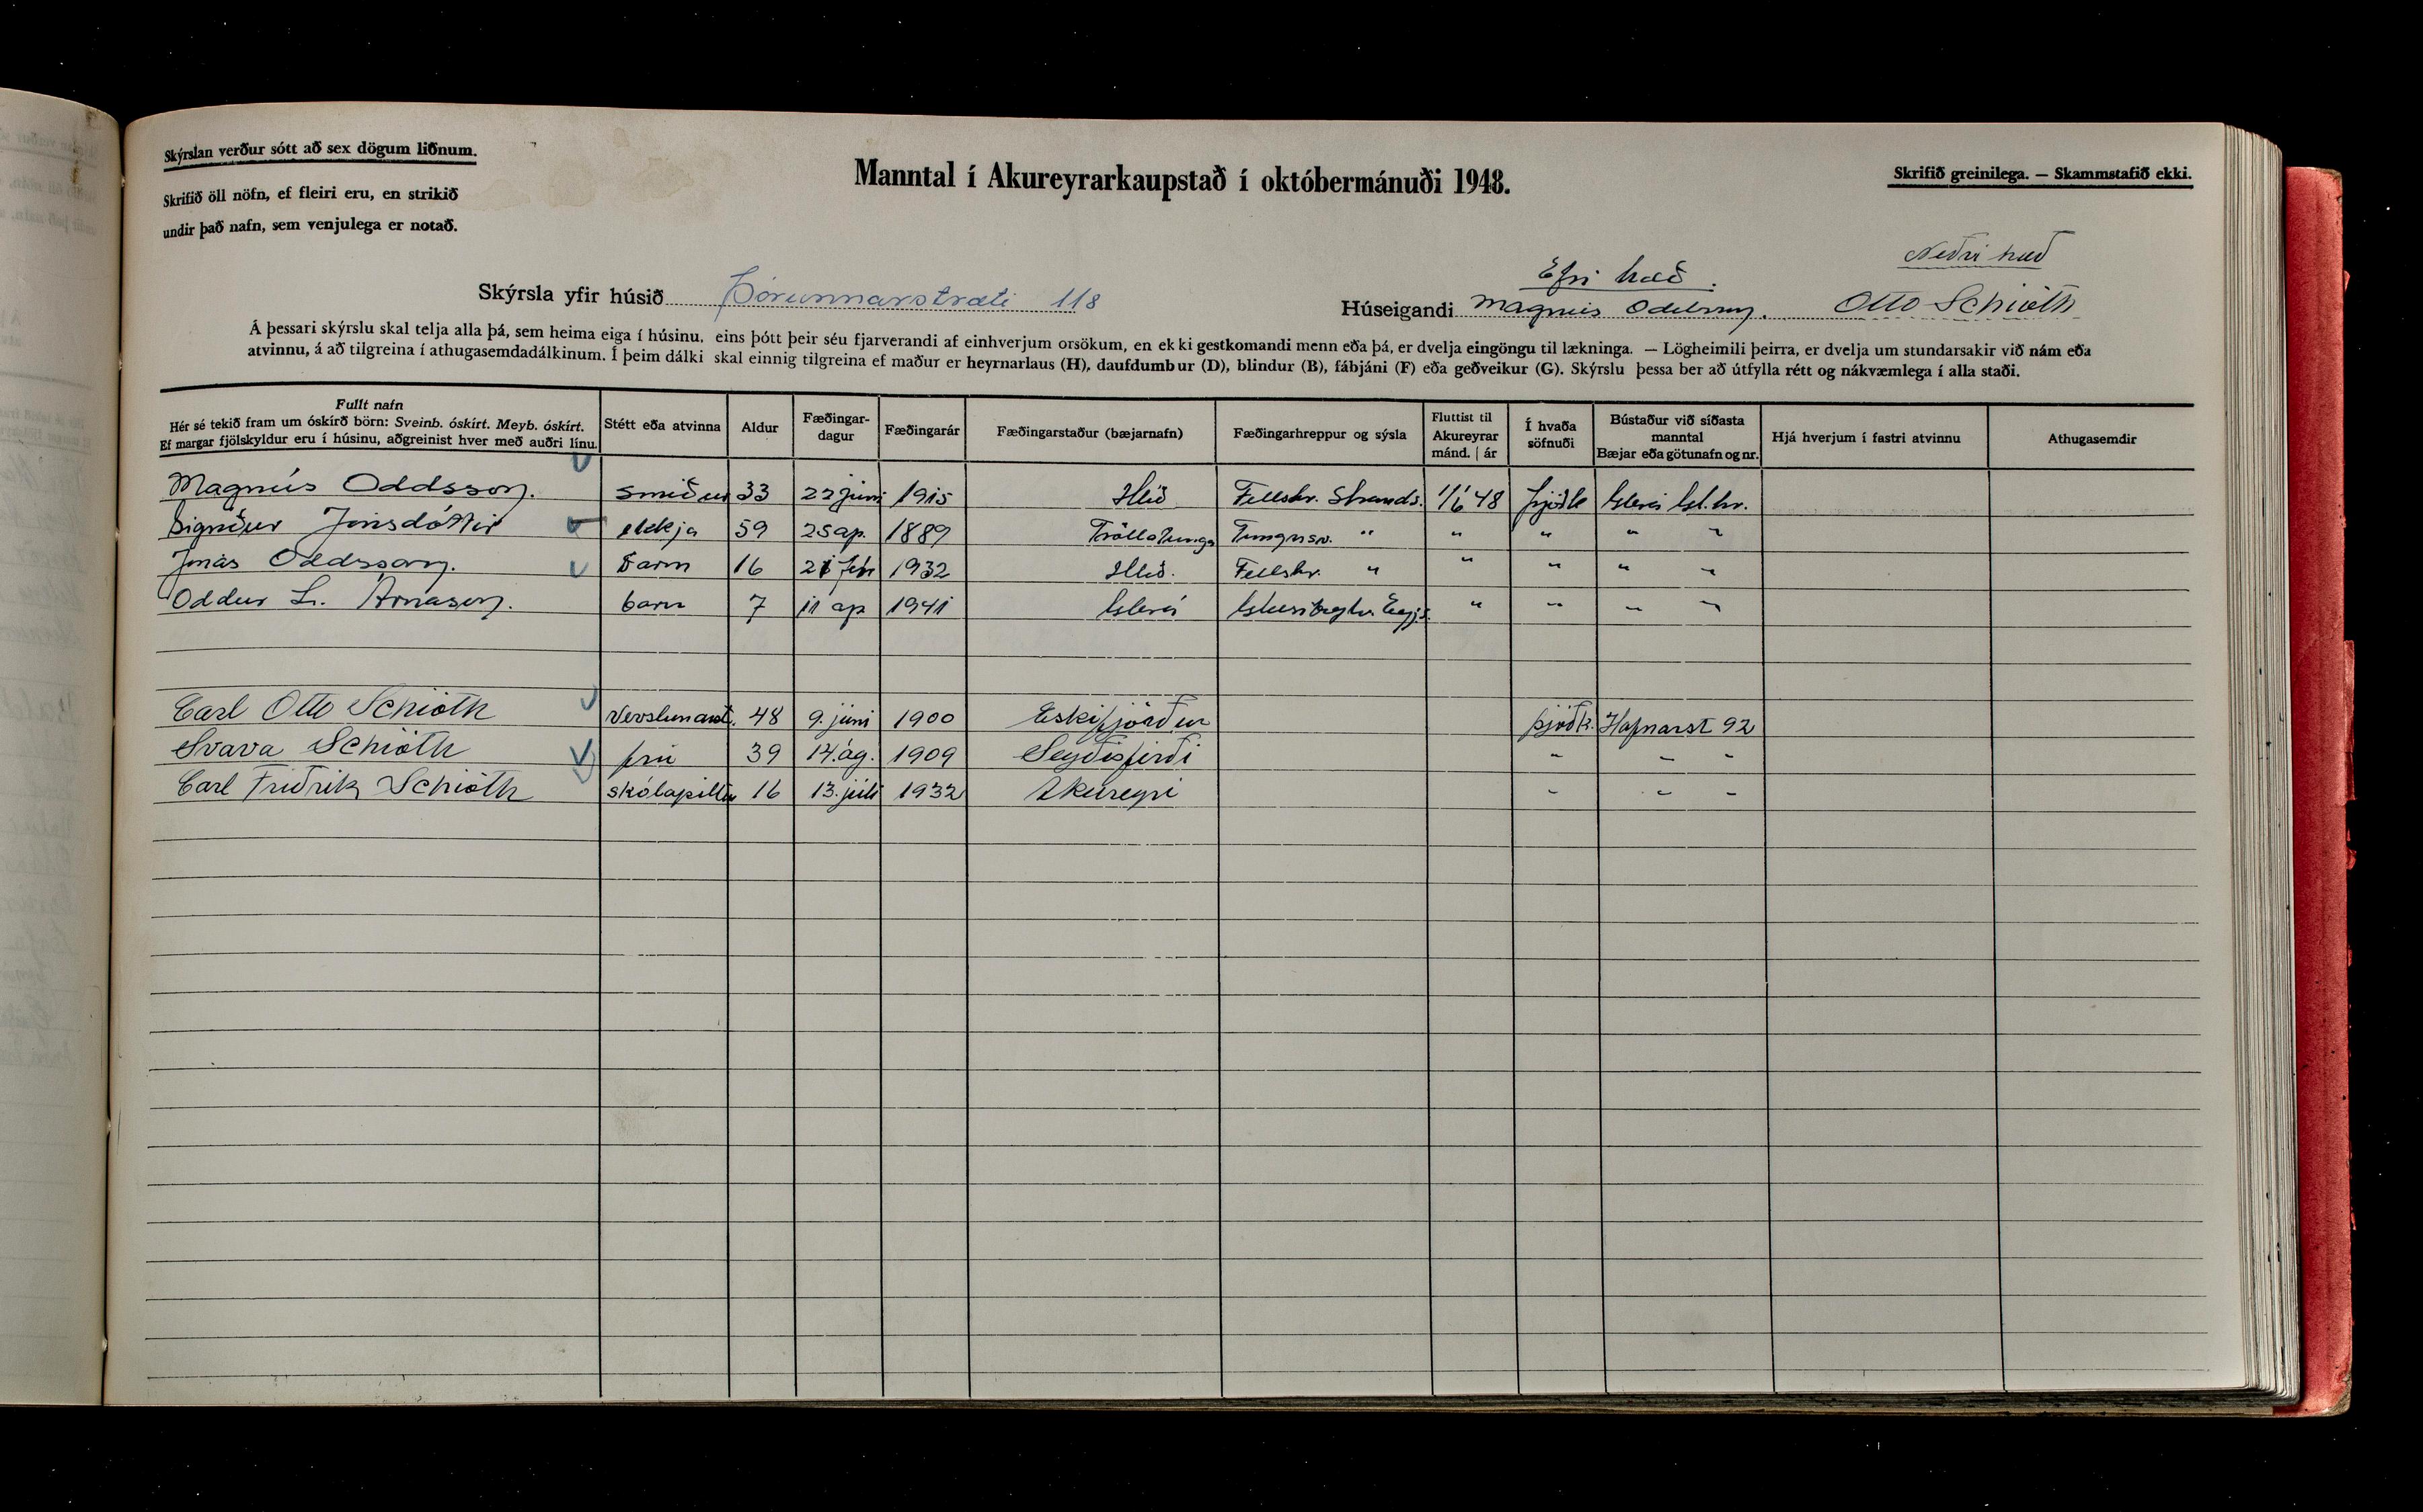 Skýrslan verður sótt að sex dögum liðnum.
Skrifið öll nöfn, ef fleiri eru, en strikið
undir það nafn, sem venjulega er notað.
Manntal í Akureyrarkaupstað í októbermánuði 1948.
Skrifið greinilega. — Skammstafið ekki.
Efri hæð. Neðri hæð
Skýrsla yfir húsið Þórunnarstræti 118 Húseigandi Magnús Oddsson. Otto Schiöth
Á þessari skýrslu skal telja alla þá, sem heima eiga í húsinu, eins þótt þeir séu fjarverandi af einhverjum orsökum, en ekki gestkomandi menn eða þá, er dvelja eingöngu til lækninga. — Lögheimili þeirra, er dvelja um stundarsakir við nám eða
atvinnu, á að tilgreina í athugasemdadálkinum. Í þeim dálki skal einnig tilgreina ef maður er heyrnarlaus (H), daufdumbur (D), blindur (B), fábjáni (F) eða geðveikur (G). Skýrslu þessa ber að útfylla rétt og nákvæmlega í alla staði.
Fullt nafn
Hér sé tekið fram um óskírð börn: Sveinb. óskírt. Meyb. óskírt.
Ef margar fjölskyldur eru í húsinu, aðgreinist hver með auðri línu.
Stétt eða atvinna
Aldur
Fæðingar-
dagur
Fæðingarár
Fæðingarstaður (bæjarnafn)
Fæðingarhreppur og sýsla
Fluttist til
Akureyrar
mánd. | ár
Í hvaða
söfnuði
Bústaður við síðasta
manntal
Bæjar eða götunafn og nr.
Hjá hverjum í fastri atvinnu
Athugasemdir
Magnús Oddsson. smiður 33 22 júni 1915 Hlíð Fellshr. Strands. 1/6 48 þjóðk Glerá Gl.hr.
Sigríður Jónsdóttir ekkja 59 25 ap. 1889 Tröllatunga Tungusv. " " " " "
Jónas Oddsson. barn 16 21 feb 1932 Hlíð. Fellshr. " " " " "
Oddur L. Árnason. barn 7 11 ap 1941 Glerá " " " "
Carl Otto Schiöth Verslunarst. 48 9. júni 1900 Eskifjörður þjóðk. Hafnarst 92
Svava Schiöth frú 39 14. ág. 1909 Seyðisfirði " " "
Carl Friðrik Schiöth skólapiltur 16 13. júli 1932 Akureyri " " "